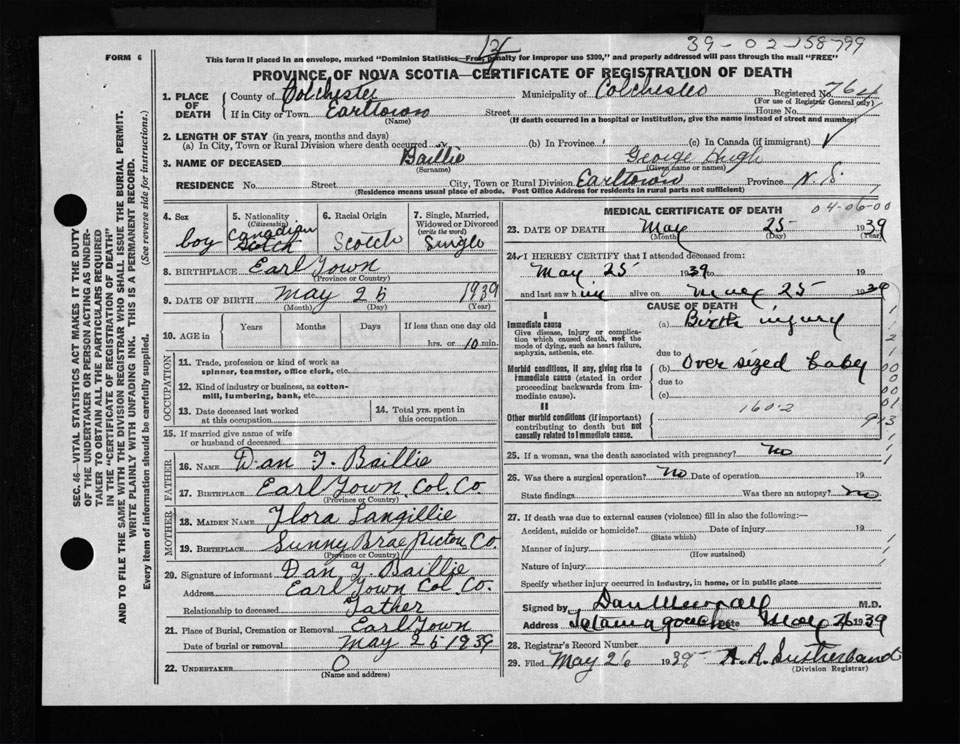 39-02-158799
FORM 6
This form if placed in an envelope, marked "Dominion Statistics—Free (penalty for improper use $300)," and properly addressed will pass through the mail "FREE"
PROVINCE OF NOVA SCOTIA—CERTIFICATE OF REGISTRATION OF DEATH
1. PLACE OF DEATH County of Colchester Municipality of Colchester Registered No. 764
(For use of Registrar General only)
If in City or Town Earltown Street House No.
(Name) (If death occurred in a hospital or institution, give the name instead of street and number)
2. LENGTH OF STAY (in years, months and days)
(a) In City, Town or Rural Division where death occurred (b) In Province (c) In Canada (if immigrant)
3. NAME OF DECEASED Baillie George Hugh
(Surname) (Given name or names)
RESIDENCE No. Street City, Town or Rural Division Earltown Province N.S.
(Residence means usual place of abode. Post Office Address for residents in rural parts not sufficient)
4. Sex boy
5. Nationality (Citizenship) Canadian Scotch
6. Racial Origin Scotch
7. Single, Married, Widowed or Divorced (write the word) Single
8. BIRTHPLACE Earl Town
(Province or Country)
9. DATE OF BIRTH May 25 1939
(Month) (Day) (Year)
10. AGE in Years Months Days If less than one day old
hrs. or 10 min.
OCCUPATION
11. Trade, profession or kind of work as spinner, teamster, office clerk, etc.
12. Kind of industry or business, as cotton-mill, lumbering, bank, etc.
13. Date deceased last worked at this occupation
14. Total yrs. spent in this occupation
15. If married give name of wife or husband of deceased
FATHER
16. NAME Dan Y. Baillie
17. BIRTHPLACE Earl Town Col. Co.
(Province or Country)
MOTHER
18. MAIDEN NAME Flora Langillie
19. BIRTHPLACE Sunny Brae Pictou Co.
(Province or Country)
20. Signature of informant Dan Y. Baillie
Address Earl Town Col. Co.
Relationship to deceased Father
21. Place of Burial, Cremation or Removal Earl Town
Date of burial or removal May 25 1939
22. UNDERTAKER O
(Name and address)
04-06-00
MEDICAL CERTIFICATE OF DEATH
23. DATE OF DEATH May 25 1939
(Month) (Day) (Year)
24. I HEREBY CERTIFY that I attended deceased from:
May 25 1939 to 19
and last saw him alive on May 25 1939
CAUSE OF DEATH
I
Immediate cause (a) Birth injury
Give disease, injury or complication which caused death, not the mode of dying, such as heart failure, asphyxia, asthenia, etc.
due to
Morbid conditions, if any, giving rise to immediate cause (stated in order proceeding backwards from immediate cause). (b) Over sized baby
due to
(c)
II
160-2
Other morbid conditions (if important) contributing to death but not causally related to immediate cause.
25. If a woman, was the death associated with pregnancy? No
26. Was there a surgical operation? No Date of operation 19
State findings Was there an autopsy? No
27. If death was due to external causes (violence) fill in also the following:—
Accident, suicide or homicide? Date of injury 19
(State which)
Manner of injury
(How sustained)
Nature of injury
Specify whether injury occurred in industry, in home, or in public place
Signed by Dan Murray M.D.
Address Tatamagouche Date May 26 1939
28. Registrar's Record Number
29. Filed May 26 1939 A. A. Sutherland
(Division Registrar)
SEC. 46—VITAL STATISTICS ACT MAKES IT THE DUTY
OF THE UNDERTAKER OR PERSON ACTING AS UNDER-
TAKER TO OBTAIN ALL THE PARTICULARS REQUIRED
IN THE "CERTIFICATE OF REGISTRATION OF DEATH"
AND TO FILE THE SAME WITH THE DIVISION REGISTRAR WHO SHALL ISSUE THE BURIAL PERMIT.
WRITE PLAINLY WITH UNFADING INK. THIS IS A PERMANENT RECORD.
Every item of information should be carefully supplied. (See reverse side for instructions.)